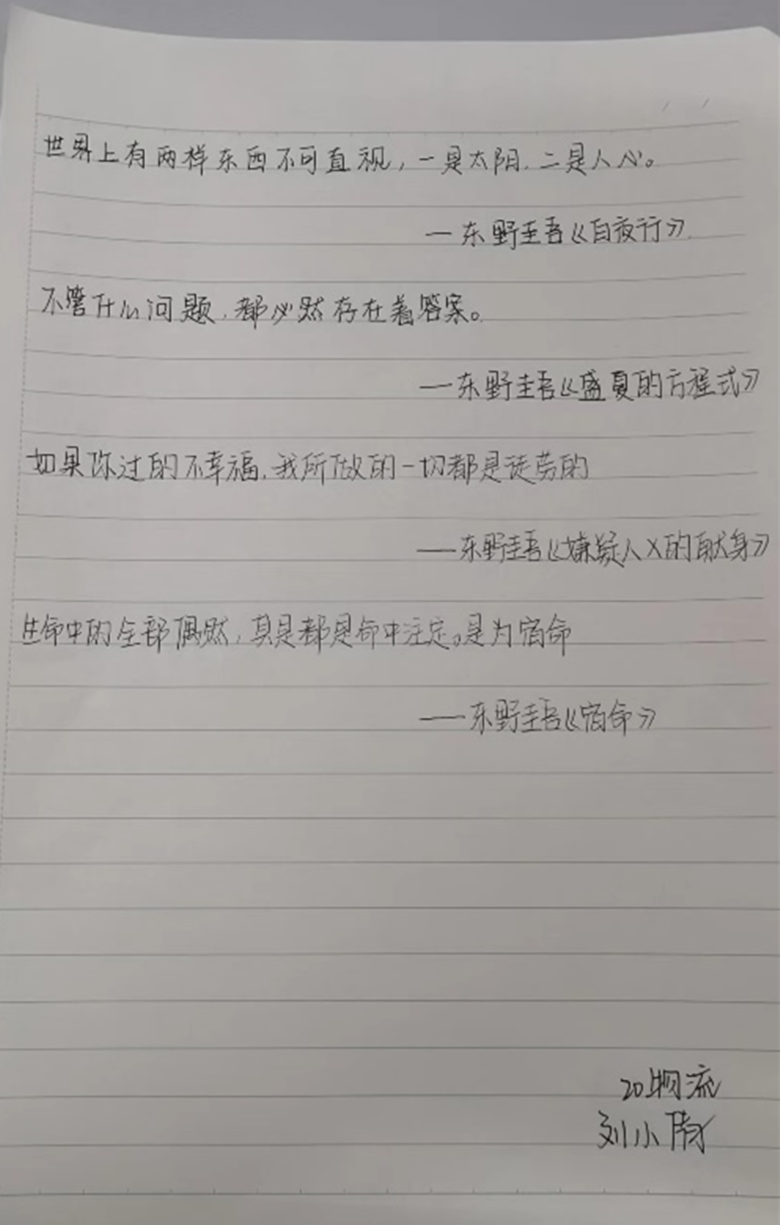 世界上有两样东西不可直视，一是太阳，二是人心。
—东野圭吾《白夜行》
不管什么问题，都必然存在着答案。
—东野圭吾《盛夏的方程式》
如果你过的不幸福，我所做的一切都是徒劳的
——东野圭吾《嫌疑人X的献身》
生命中的全部偶然，其是都是命中注定。是为宿命
——东野圭吾《宿命》
20物流
刘小